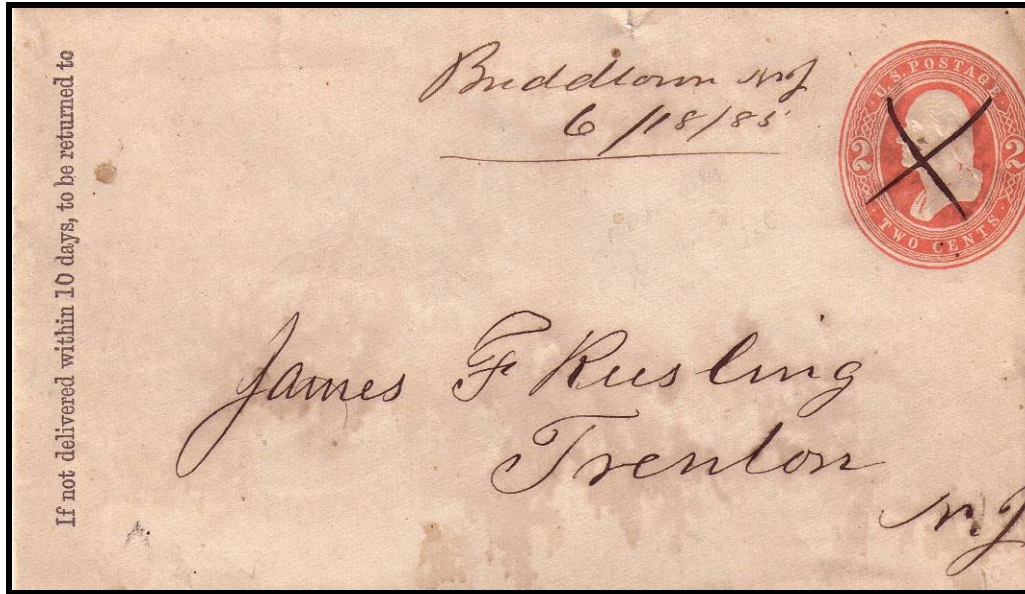 If not delivered within 10 days, to be returned to
Buddtown NJ
6/18/85
U.S. POSTAGE
2 2
TWO CENTS
James F Rusling
Trenton
NJ